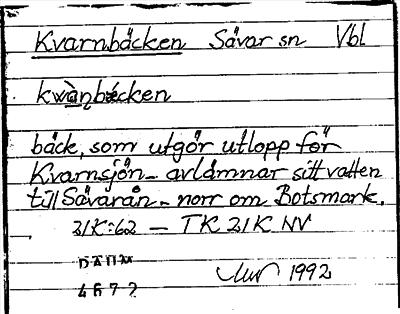 Kvarnbäcken Sävar sn Vbl
kwànbäcken
bäck, som utgör utlopp för
Kvarnsjön - avlämnar sitt vatten
till Sävarån - norr om Botsmark.
21K:62 - TK 21K NV
DAUM
4672
1992